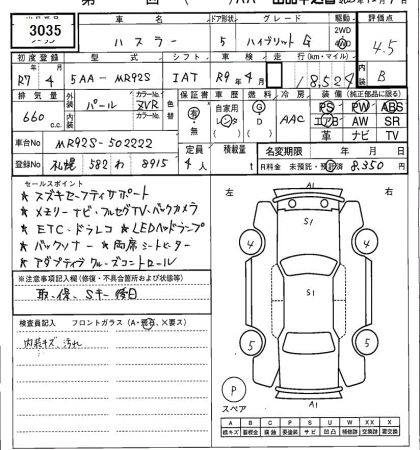 3035
車名 ドア形状 グレード 駆動 評価点
ハスラー 5 ハイブリッドG 2WD 4WD 4.5
初度登録 型式 シフト 車検 走行(km・マイル) 内装
R7 4 5AA-MR92S IAT R9年4月 18,524 B
排気量 外装 カラー 色替 保証書 車歴 燃料 冷房 装備(純正部品に限る)
660 c.c. パール カラーNo. ZVR 内装 カラーNo. 有・無 自家用 レンタ G D AAC PS PW ABS
エアB AW SR
革 ナビ TV
車台No MR92S-502222 定員 積載量 名変期限 年 月 日
登録No 札幌 582 わ 8915 4人 t R料金 未預託・預託済 8,350円
セールスポイント
★スズキセーフティサポート
★メモリーナビ・フルセグTV・バックカメラ
★ETC・ドラレコ ★LEDヘッドランプ
★バックソナー ★両席シートヒーター
★アダプティブクルーズコントロール
※注意事項記入欄(修復・不具合箇所および状態等)
取、保、Sキー後日
検査員記入 フロントガラス(A・飛石・X要ス)
内装キズ、汚れ
左 右
A1
S1
4 4
S1
5 5
P
スペア
A1
A B C P S U W X XX
線キズ 腐蝕 要塗装 サビ 凹凸 補修跡 交換跡 要交換